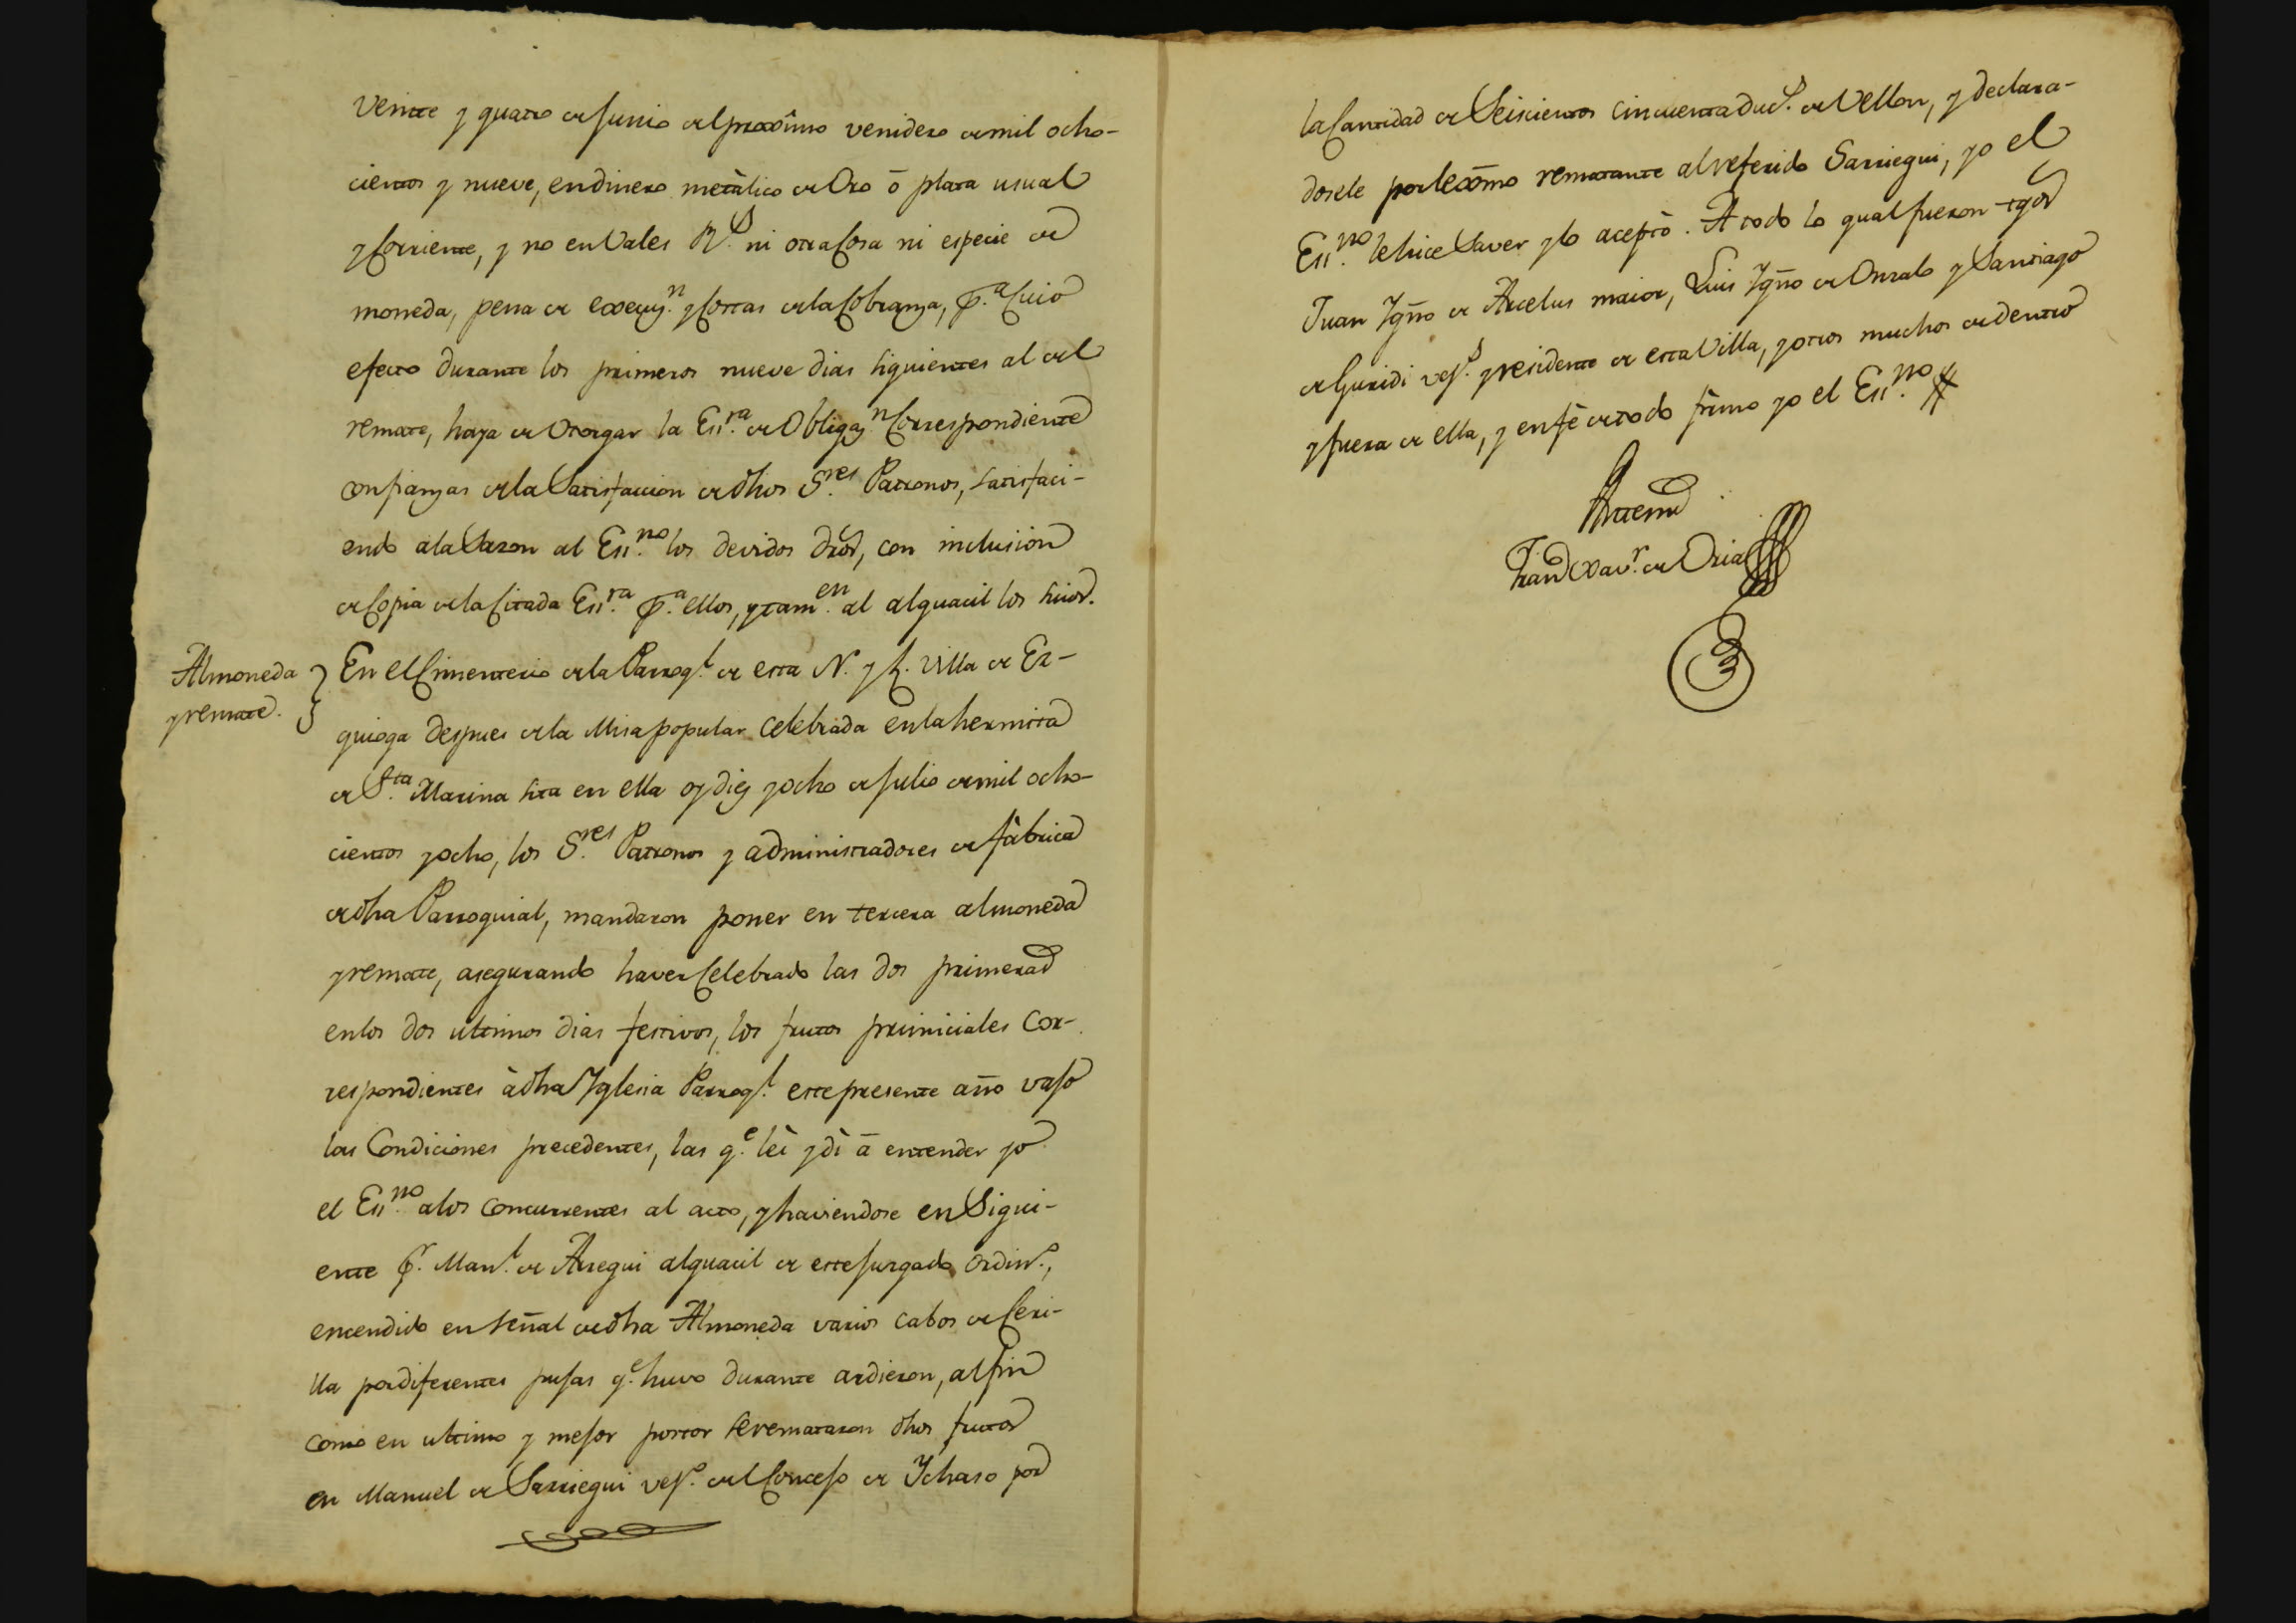 Veinte y quatro de Junio del proximo venidero de mil ocho-
cientos y nueve, en dinero metàlico de Oro ò plata usual
y Corriente, y no en Vales Rs. ni otra Cosa ni especie de
moneda, pena de execuzn. y Costas de la Cobranza, pa. Cuio
efecto durante los primeros nueve dias siguientes al del
remate, haya de Otorgar la Essra. de Obligazn. Correspondiente
con fianzas de la Satisfaccion de dhos Sres. Patronos, satisfaci-
endo a la Sazon al Essno. los devidos dros, con inclusion
de Copia de la Citada Essra. pa. ellos, y tamen. al alguacil los suios.
Almoneda
y remate.
En el Cimenterio de la Parroql. de esta N. y L. Villa de Ez-
quioga despues de la Misa popular celebrada en la hermita
de Sta. Marina sita en ella oy diez y ocho de Julio de mil ocho-
cientos y ocho, los Sres. Patronos y administradores de fàbrica
de dha Parroquial, mandaron poner en tercera almoneda
y remate, asegurando haver Celebrado las dos primeras
en los dos ultimos dias festivos, los frutos primiciales cor-
respondientes à dha Yglesia Parroql. este presente año vajo
las Condiciones precedentes, las qe. leì y dì à entender yo
el Essno. a los concurrentes al acto, y haviendose en Sigui-
ente pr. Manl. de Arregui alguacil de este Juzgado ordino.,
encendido en señal de dha Almoneda varios cabos de Ceri-
lla por diferentes pujas qe. huvo durante ardieron, al fin
como en ultimo y mejor postor se remataron dhos frutos
en Manuel de Sarriegui vezo. del Concejo de Ychaso por
la Cantidad de Seiscientos cincuenta ducs. de Vellon, y declara-
dosele por lexmo rematante al referido Sarriegui, yo el
Essno. le hice Saver y lo aceptò. A todo lo qual fueron tgos
Juan Ygño de Arcelus maior, Luis Ygño de Onzalo y Santiago
de Guridi vezs. y residente de esta Villa, y otros muchos de dentro
y fuera de ella, y en fè de todo firmo yo el Essno.
Antemi
Franco Xavr. de Oria